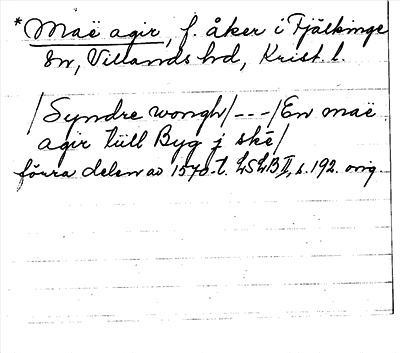 *Maë agir, f. åker i Fjälkinge
sn, Villands hd, Krist. l.
/Syndre wongh/---/En maë
agir tiill Byg j skē/
förra delen av 1570-t. LSLB II, s. 192. orig.